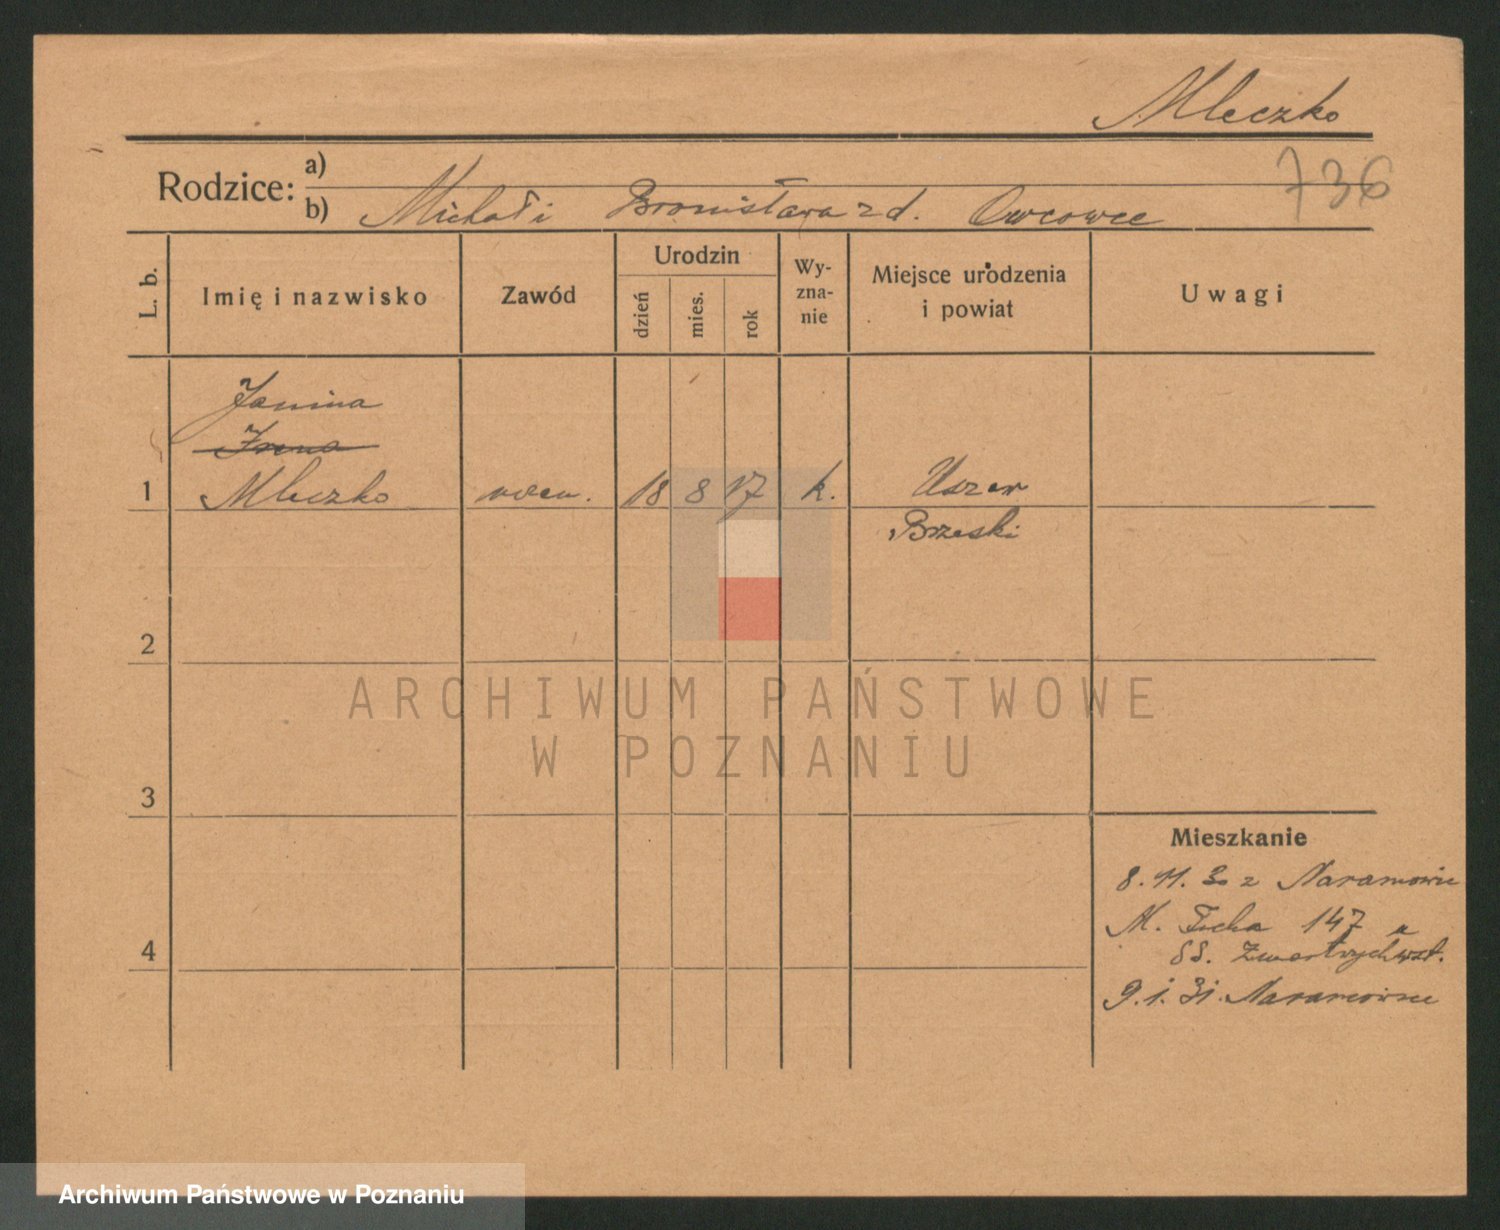 Mleczko
736
Rodzice: a)
b) Michał i Bronisława z d. Owcowce
L. b.
Imię i nazwisko
Zawód
Urodzin
dzień
mies.
rok
Wy-
zna-
nie
Miejsce urodzenia
i powiat
Uwagi
Janina
Irena
1 Mleczko uczen. 18 8 17 k. Uszew
Brzeski
2
3
4
ARCHIWUM PAŃSTWOWE
W POZNANIU
Mieszkanie
8. 11. 30 z Naramowic
M. Focha 147 u
SS. Zmartwychwst.
9. 1. 31. Naramowice
Archiwum Państwowe w Poznaniu